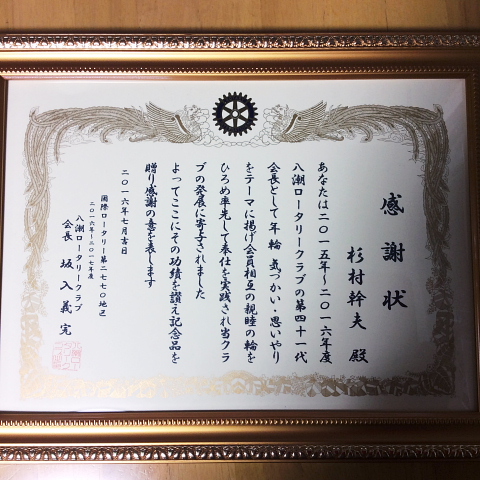 感謝状
杉村幹夫 殿
あなたは二〇一五年〜二〇一六年度
八潮ロータリークラブの第四十一代
会長として年輪 気づかい・思いやり
をテーマに掲げ会員相互の親睦の輪を
ひろめ率先して奉仕を実践され当クラ
ブの発展に寄与されました
よってここにその功績を讃え記念品を
贈り感謝の意を表します
二〇一六年七月吉日
国際ロータリー第二七七〇地区
二〇一六年〜二〇一七年度
八潮ロータリークラブ
会長 坂入義実